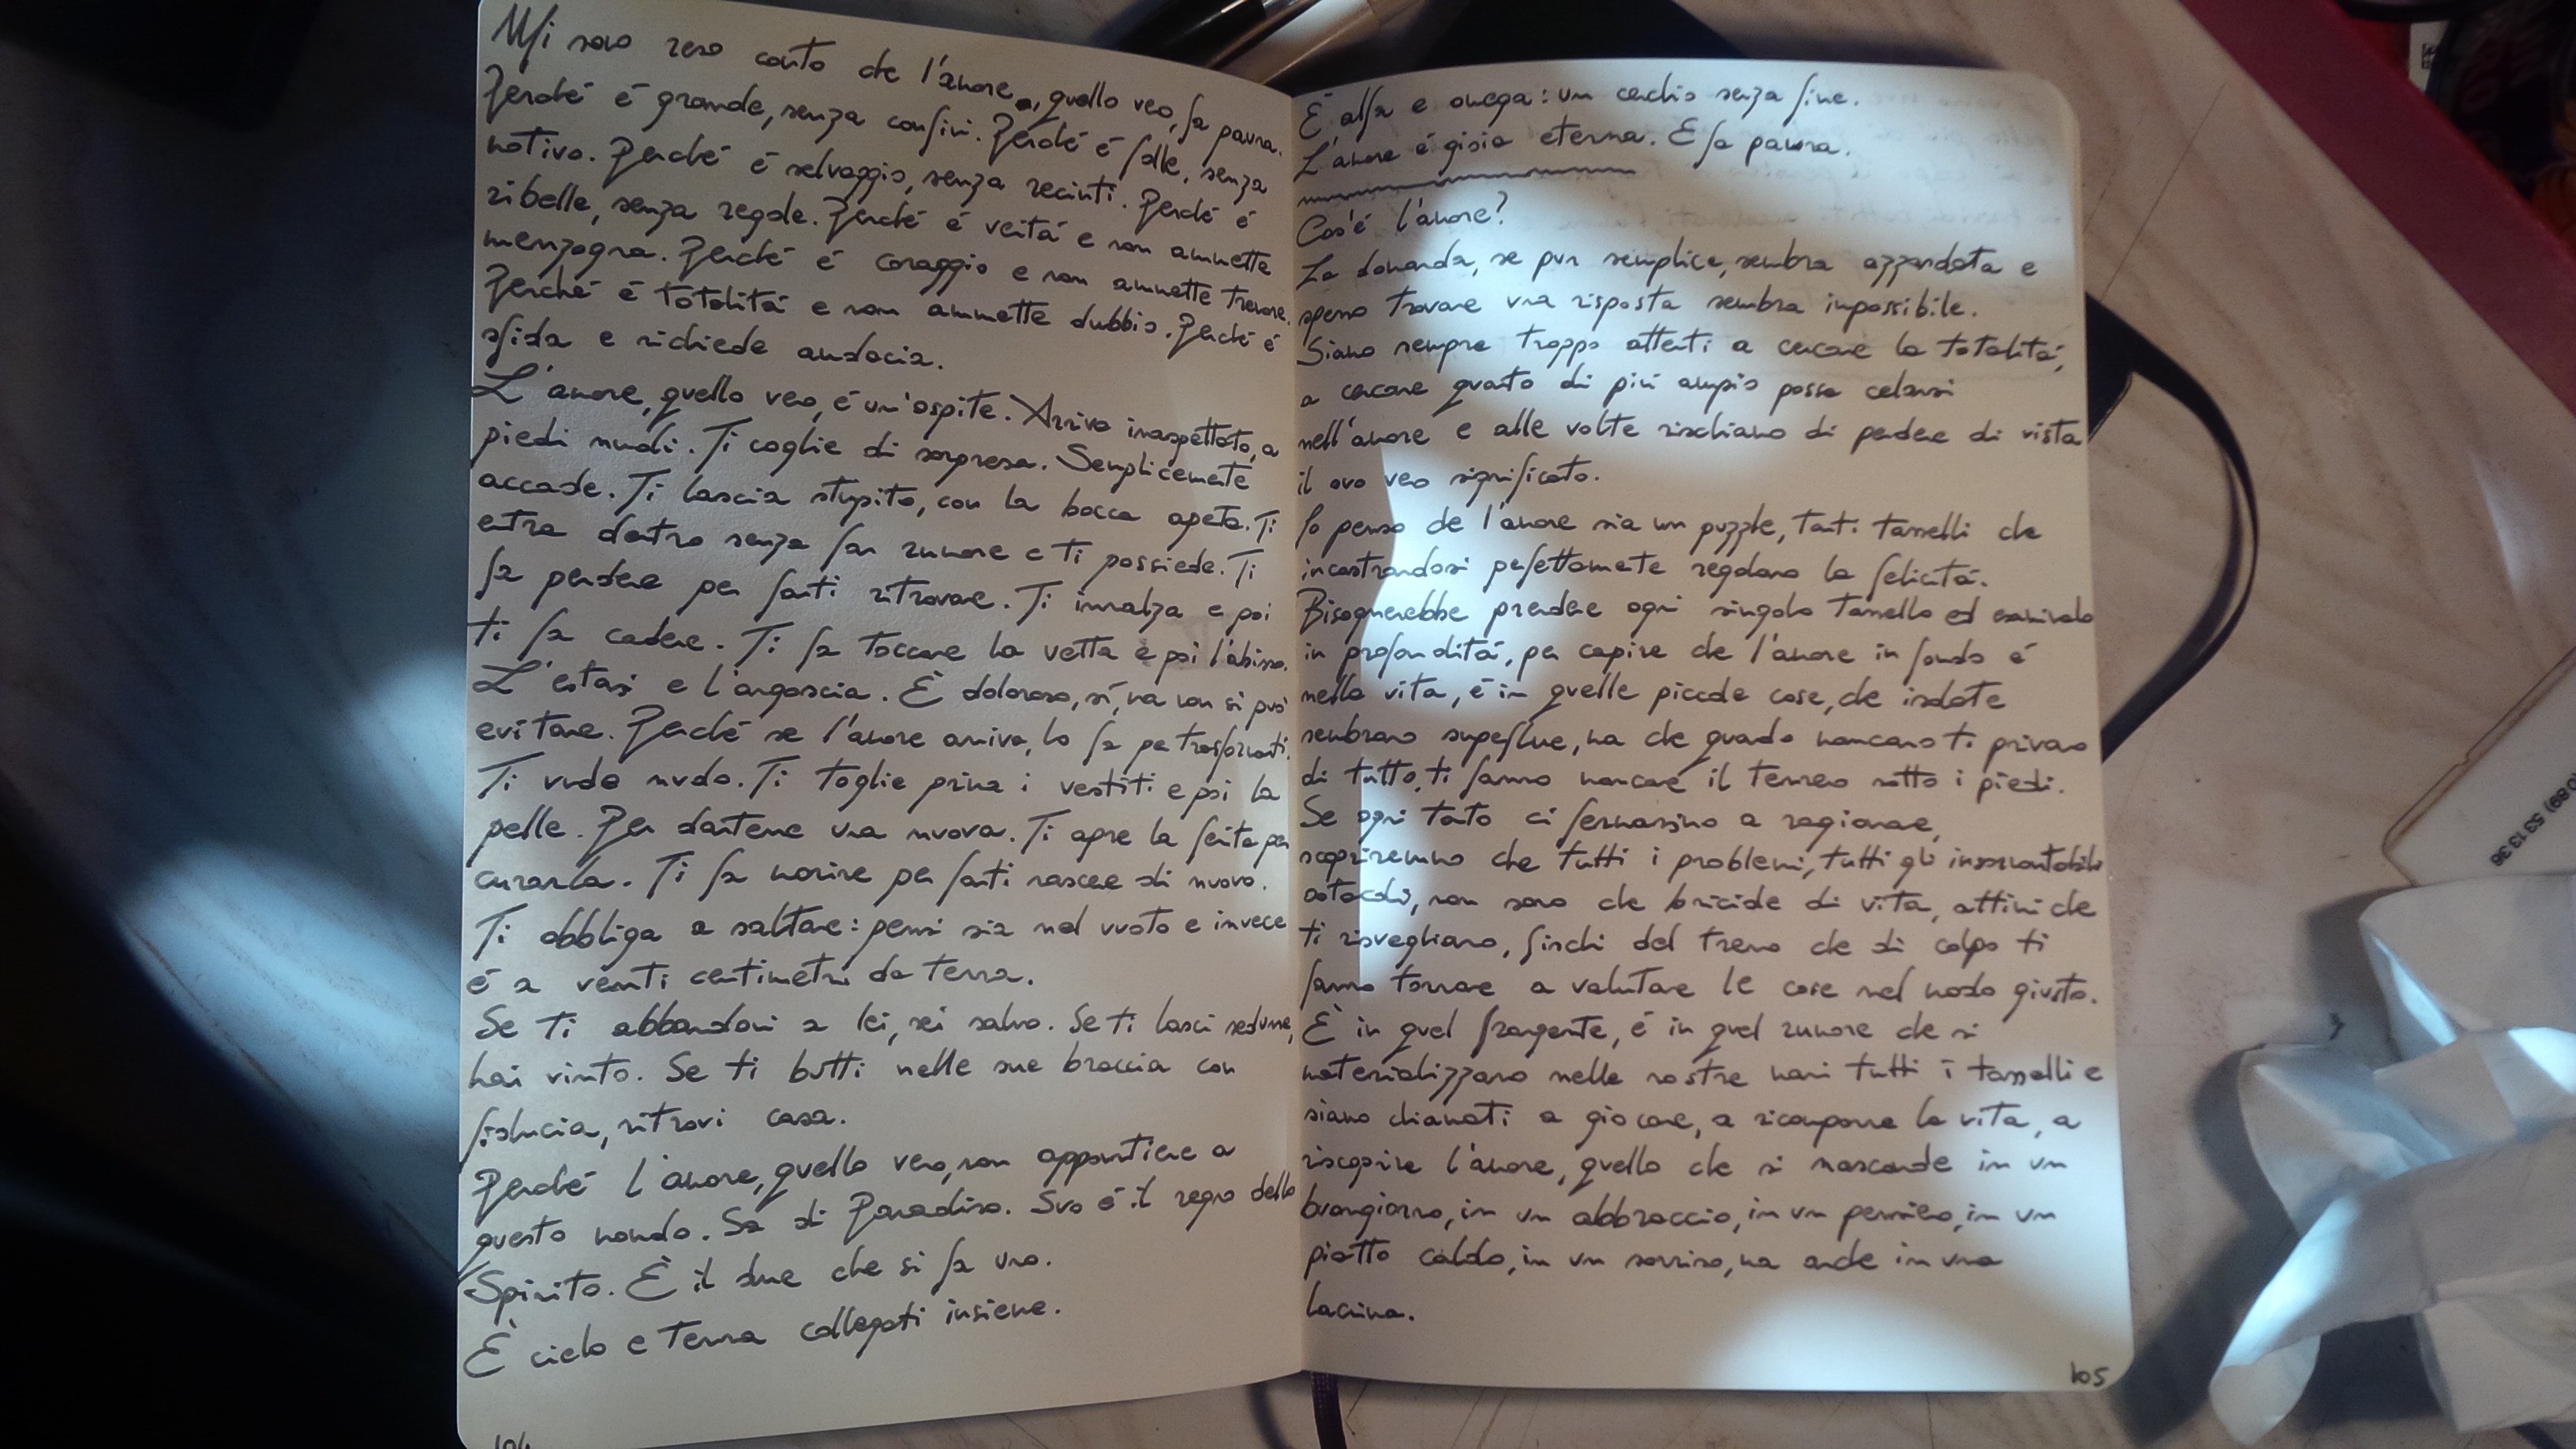 Mi sono reso conto che l'amore, quello vero, fa paura.
Perché é grande, senza confini. Perché é folle, senza
motivo. Perché é selvaggio, senza recinti. Perché é
ribelle, senza regole. Perché é veritá e non ammette
menzogna. Perché é coraggio e non ammette tremore.
Perché é totalitá e non ammette dubbio. Perché é
sfida e richiede audacia.
L'amore, quello vero, é un'ospite. Arriva inaspettato, a
piedi nudi. Ti coglie di sorpresa. Semplicemente
accade. Ti lascia stupito, con la bocca aperta. Ti
entra dentro senza far rumore e ti possiede. Ti
fa perdere per farti ritrovare. Ti innalza e poi
ti fa cadere. Ti fa toccare la vetta e poi l'abisso.
L'estasi e l'angoscia. È doloroso, sí, ma non si puó
evitare. Perché se l'amore arriva, lo fa per trasformarti.
Ti vude nudo. Ti toglie prima i vestiti e poi la
pelle. Per dartene una nuova. Ti apre la ferita per
curarla. Ti fa morire per farti nascere di nuovo.
Ti obbliga a saltare: pensi sia nel vuoto e invece
é a venti centimetri da terra.
Se ti abbandoni a lei, sei salvo. Se ti lasci sedurre,
hai vinto. Se ti butti nelle sue braccia con
fiducia, ritrovi casa.
Perché l'amore, quello vero, non appartiene a
questo mondo. Sa di Paradiso. Suo é il regno dello
Spirito. È il due che si fa uno.
È cielo e terra collegati insieme.
104
È alfa e omega: un cerchio senza fine.
L'amore é gioia eterna. E fa paura.
Cos'é l'amore?
La domanda, se pur semplice, sembra azzardata e
spesso trovare una risposta sembra impossibile.
Siamo sempre troppo attenti a cercare la totalitá,
a cercare quanto di piú ampio possa celarsi
nell'amore e alle volte rischiamo di perdere di vista
il suo vero significato.
Io penso che l'amore sia un puzzle, tanti tasselli che
incastrandosi perfettamente regalano la felicitá.
Bisognerebbe prendere ogni singolo tassello ed esaminarlo
in profonditá, per capire che l'amore in fondo é
nella vita, é in quelle piccole cose, che isolate
sembrano superflue, ma che quando mancano ti privano
di tutto, ti fanno mancare il terreno sotto i piedi.
Se ogni tanto ci fermassimo a ragionare,
scopriremmo che tutti i problemi, tutti gli insormontabili
ostacoli, non sono che briciole di vita, attimi che
ti risvegliano, fischi del treno che di colpo ti
fanno tornare a valutare le cose nel modo giusto.
È in quel frangente, é in quel rumore che si
materializzano nelle nostre mani tutti i tasselli e
siamo chiamati a giocare, a ricomporre la vita, a
riscoprire l'amore, quello che si nasconde in un
buongiorno, in un abbraccio, in un pensiero, in un
piatto caldo, in un sorriso, ma anche in una
lacrima.
105
53 13 36